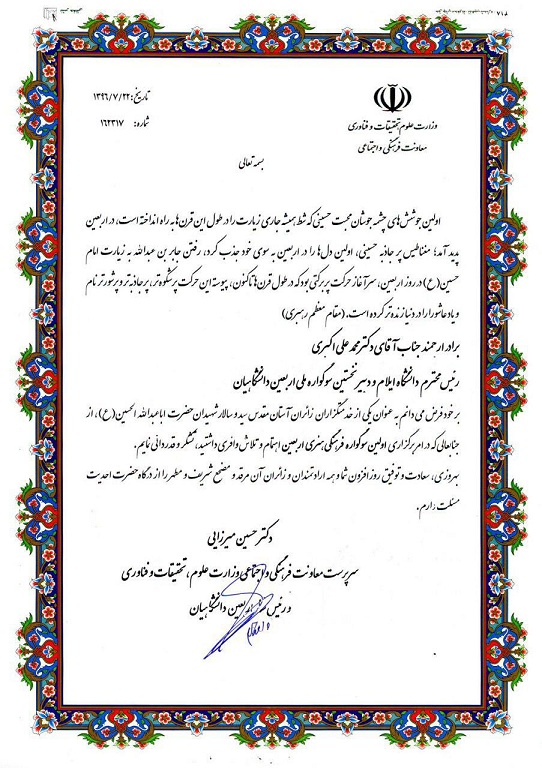 تاریخ: ۱۳۹۶/۷/۲۲
شماره: ۱۶۲۳۱۷
وزارت علوم تحقیقات و فناوری
معاونت فرهنگی و اجتماعی
بسمه تعالی
اولین جوشش‌های چشمه جوشان محبت حسینی که شط همیشه جاری زیارت را در طول این قرن‌ها به راه انداخته است، در اربعین
پدید آمد؛ مغناطیس پر جاذبه حسینی، اولین دل‌ها را در اربعین به سوی خود جذب کرد، رفتن جابر بن عبدالله به زیارت امام
حسین(ع) در روز اربعین، سرآغاز حرکت پربرکتی بود که در طول قرن‌ها تاکنون، پیوسته این حرکت پرشکوه‌تر، پرجاذبه‌تر و پرشورتر نام
و یاد عاشورا را در دنیا زنده‌تر کرده است. (مقام معظم رهبری)
برادر ارجمند جناب آقای دکتر محمد علی اکبری
رئیس محترم دانشگاه ایلام و دبیر نخستین سوگواره ملی اربعین دانشگاهیان
بر خود فرض می دانم به عنوان یکی از خدمتگزاران زائران آستان مقدس سید و سالار شهیدان حضرت اباعبدالله الحسین(ع)، از
جنابعالی که در امر برگزاری اولین سوگواره فرهنگی هنری اربعین اهتمام و تلاش وافری داشتید، تشکر و قدردانی نمایم.
بهروزی، سعادت و توفیق روز افزون شما و همه ارادتمندان و زائران آن مرقد و مضجع شریف و مطهر را از درگاه حضرت احدیت
مسئلت دارم.
دکتر حسین میرزایی
سرپرست معاونت فرهنگی و اجتماعی وزارت علوم، تحقیقات و فناوری
و رئیس ستاد اربعین دانشگاهیان